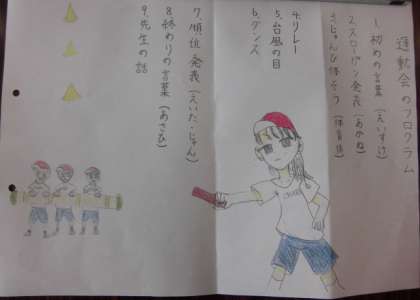 運動会のプログラム
1.初めの言葉(えいすけ)
2.スローガン発表(あかね)
3.じゅんび体そう(体育係)
4.リレー
5.台風の目
6.ダンス
7.順位発表(えいた・じゅん)
8.終わりの言葉(あさひ)
9.先生の話